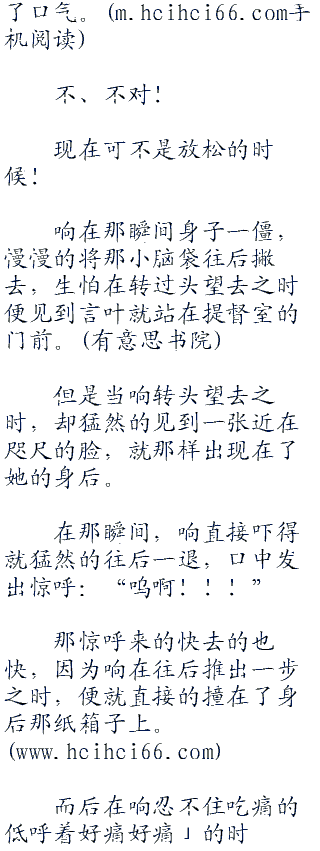 了口气。(m.hcihci66.com手
机阅读)
不、不对！
现在可不是放松的时
候！
响在那瞬间身子一僵，
慢慢的将那小脑袋往后撇
去，生怕在转过头望去之时
便见到言叶就站在提督室的
门前。(有意思书院)
但是当响转头望去之
时，却猛然的见到一张近在
咫尺的脸，就那样出现在了
她的身后。
在那瞬间，响直接吓得
就猛然的往后一退，口中发
出惊呼：“呜啊！！！”
那惊呼来的快去的也
快，因为响在往后推出一步
之时，便就直接的撞在了身
后那纸箱子上。
(www.hcihci66.com)
而后在响忍不住吃痛的
低呼着好痛好痛」的时